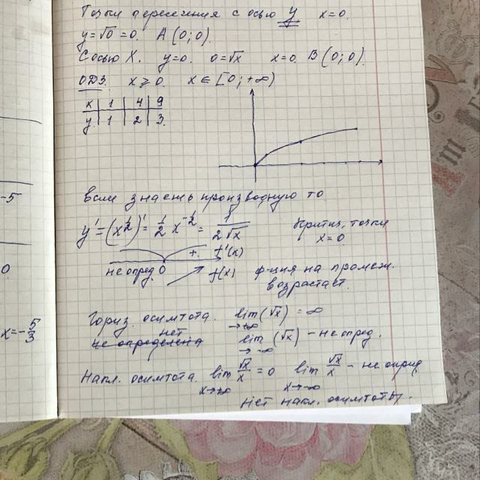 Точки пересечения с осью y x=0.
y=√0=0. A(0;0)
С осью X. y=0. 0=√x x=0. B(0;0).
ОДЗ. x⩾0. x∈[0;+∞)
x 1 4 9
y 1 2 3.
Если знаешь производную то
y'=(x^½)'=½x^-½=1/(2√x) критич. точки
x=0
+. f'(x)
не опред. 0 f(x) ф-ция на промеж.
возрастает
Гориз. осимтота. lim(√x)=∞
→+∞
нет
не определена lim(√x) - не опред.
→-∞
Накл. осимтота lim √x/x=0 lim √x/x - не опред
x→∞ x→-∞
нет накл. осимтоты.
-5
0
x=-5/3